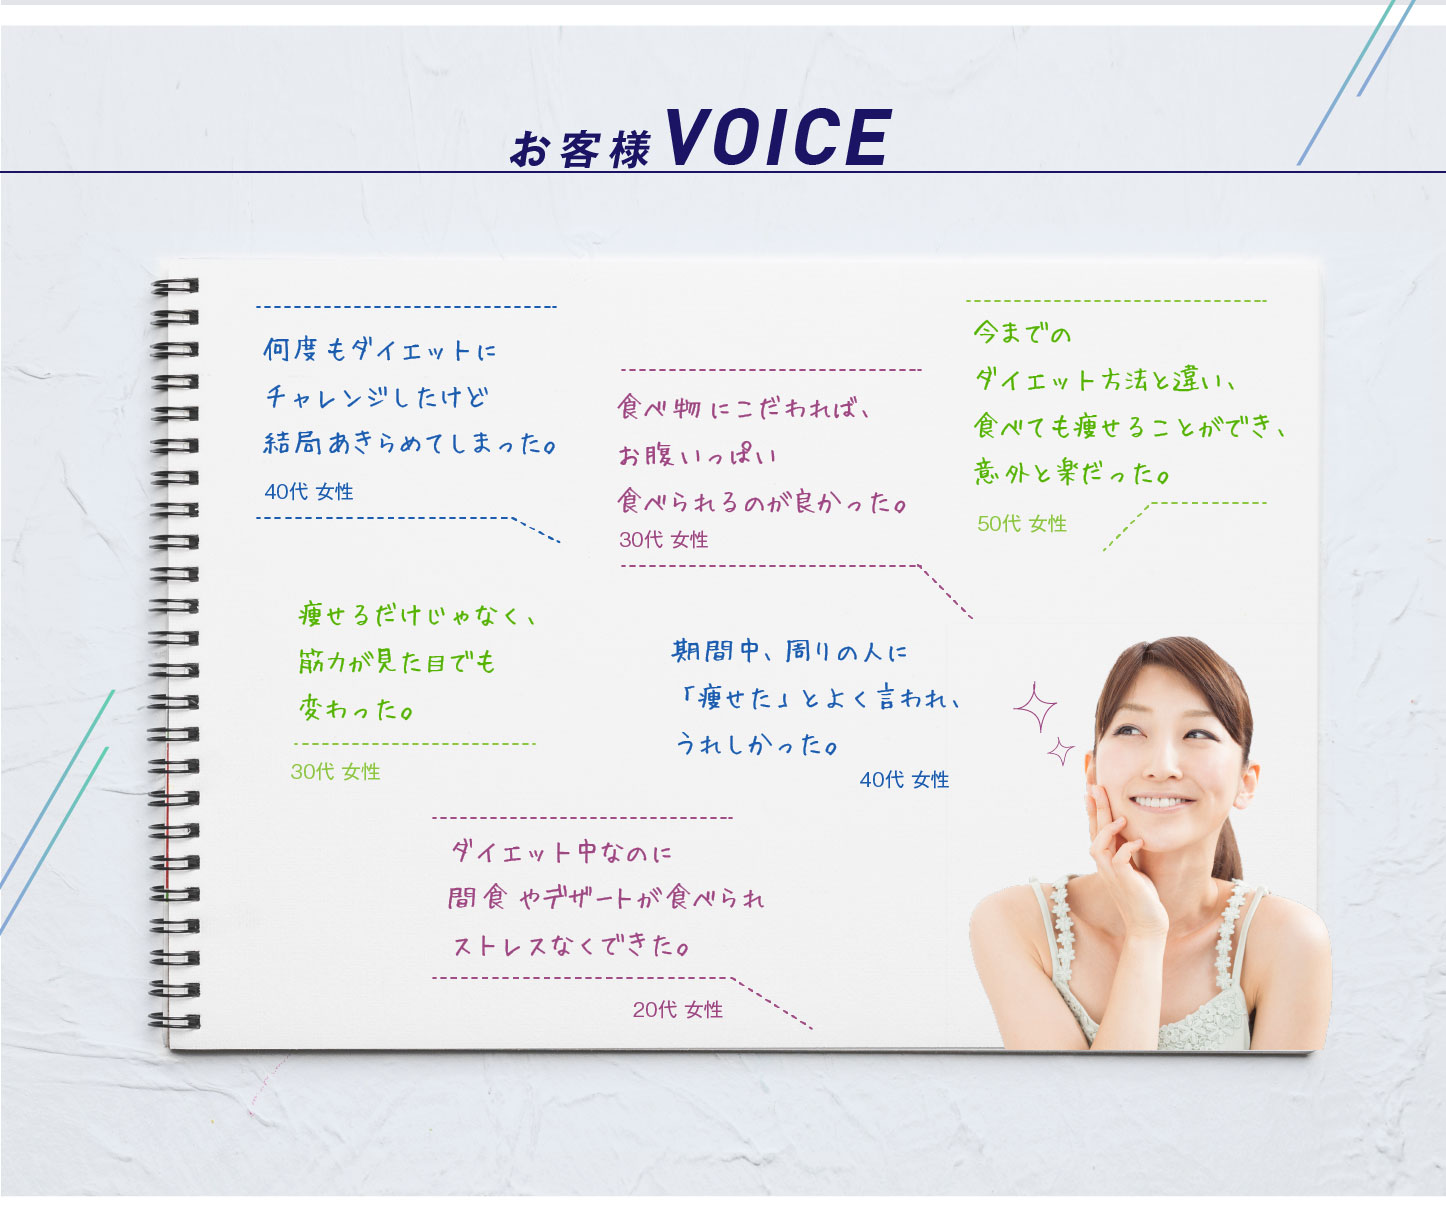 お客様VOICE
何度もダイエットに
チャレンジしたけど
結局あきらめてしまった。
40代 女性
食べ物にこだわれば、
お腹いっぱい
食べられるのが良かった。
30代 女性
今までの
ダイエット方法と違い、
食べても痩せることができ、
意外と楽だった。
50代 女性
痩せるだけじゃなく、
筋力が見た目でも
変わった。
30代 女性
期間中、周りの人に
「痩せた」とよく言われ、
うれしかった。
40代 女性
ダイエット中なのに
間食やデザートが食べられ
ストレスなくできた。
20代 女性